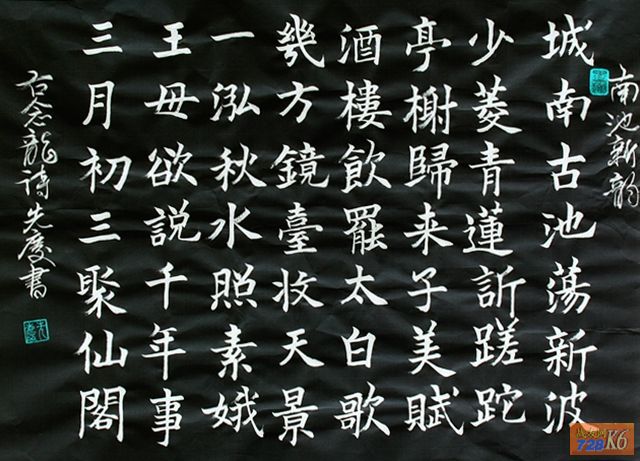 南池新韵
城南古池蕩新波
少菱青蓮訢蹉跎
亭榭歸来子美賦
酒樓飲罷太白歌
幾方鏡臺妆天景
一泓秋水照素娥
王母欲説千年事
三月初三聚仙閣
念龍詩先慶書
728 K6